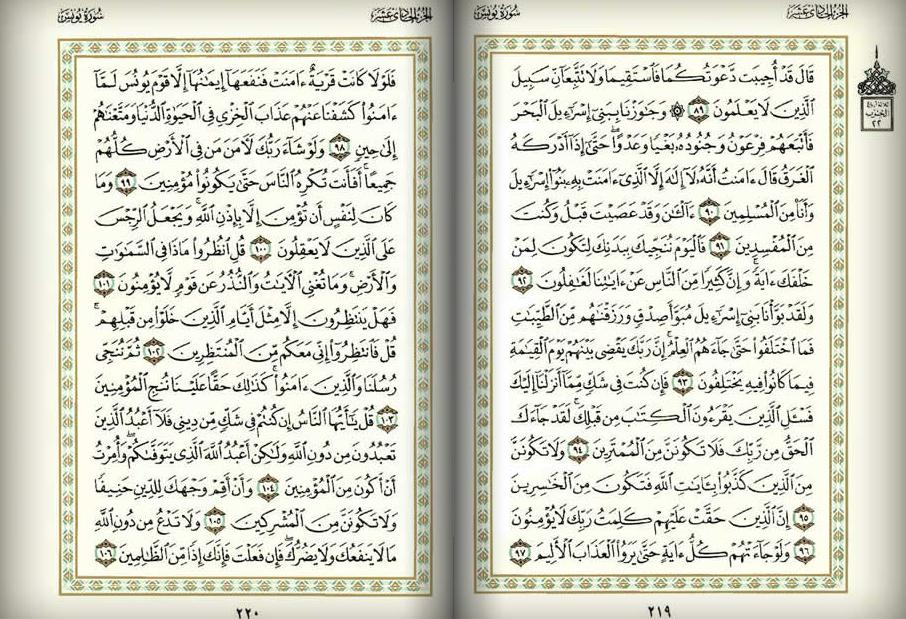 الجزء الحادي عشر
سورة يونس
قَالَ قَدْ أُجِيبَت دَّعْوَتُكُمَا فَٱسْتَقِيمَا وَلَا تَتَّبِعَآنِّ سَبِيلَ
ٱلَّذِينَ لَا يَعْلَمُونَ ٨٩ ۞ وَجَٰوَزْنَا بِبَنِىٓ إِسْرَٰٓءِيلَ ٱلْبَحْرَ
فَأَتْبَعَهُمْ فِرْعَوْنُ وَجُنُودُهُۥ بَغْيًا وَعَدْوًا ۖ حَتَّىٰٓ إِذَآ أَدْرَكَهُ
ٱلْغَرَقُ قَالَ ءَامَنتُ أَنَّهُۥ لَآ إِلَٰهَ إِلَّا ٱلَّذِىٓ ءَامَنَتْ بِهِۦ بَنُوٓا۟ إِسْرَٰٓءِيلَ
وَأَنَا۠ مِنَ ٱلْمُسْلِمِينَ ٩٠ ءَآلْـَٰٔنَ وَقَدْ عَصَيْتَ قَبْلُ وَكُنتَ
مِنَ ٱلْمُفْسِدِينَ ٩١ فَٱلْيَوْمَ نُنَجِّيكَ بِبَدَنِكَ لِتَكُونَ لِمَنْ
خَلْفَكَ ءَايَةً ۚ وَإِنَّ كَثِيرًا مِّنَ ٱلنَّاسِ عَنْ ءَايَٰتِنَا لَغَٰفِلُونَ ٩٢
وَلَقَدْ بَوَّأْنَا بَنِىٓ إِسْرَٰٓءِيلَ مُبَوَّأَ صِدْقٍ وَرَزَقْنَٰهُم مِّنَ ٱلطَّيِّبَٰتِ
فَمَا ٱخْتَلَفُوا۟ حَتَّىٰ جَآءَهُمُ ٱلْعِلْمُ ۚ إِنَّ رَبَّكَ يَقْضِى بَيْنَهُمْ يَوْمَ ٱلْقِيَٰمَةِ
فِيمَا كَانُوا۟ فِيهِ يَخْتَلِفُونَ ٩٣ فَإِن كُنتَ فِى شَكٍّ مِّمَّآ أَنزَلْنَآ إِلَيْكَ
فَسْـَٔلِ ٱلَّذِينَ يَقْرَءُونَ ٱلْكِتَٰبَ مِن قَبْلِكَ ۚ لَقَدْ جَآءَكَ
ٱلْحَقُّ مِن رَّبِّكَ فَلَا تَكُونَنَّ مِنَ ٱلْمُمْتَرِينَ ٩٤ وَلَا تَكُونَنَّ
مِنَ ٱلَّذِينَ كَذَّبُوا۟ بِـَٔايَٰتِ ٱللَّهِ فَتَكُونَ مِنَ ٱلْخَٰسِرِينَ
٩٥ إِنَّ ٱلَّذِينَ حَقَّتْ عَلَيْهِمْ كَلِمَتُ رَبِّكَ لَا يُؤْمِنُونَ
٩٦ وَلَوْ جَآءَتْهُمْ كُلُّ ءَايَةٍ حَتَّىٰ يَرَوُا۟ ٱلْعَذَابَ ٱلْأَلِيمَ ٩٧
٢١٩
ثلاثة أرباع
الحزب
٢٢
الجزء الحادي عشر
سورة يونس
فَلَوْلَا كَانَتْ قَرْيَةٌ ءَامَنَتْ فَنَفَعَهَآ إِيمَٰنُهَآ إِلَّا قَوْمَ يُونُسَ لَمَّآ
ءَامَنُوا۟ كَشَفْنَا عَنْهُمْ عَذَابَ ٱلْخِزْىِ فِى ٱلْحَيَوٰةِ ٱلدُّنْيَا وَمَتَّعْنَٰهُمْ
إِلَىٰ حِينٍ ٩٨ وَلَوْ شَآءَ رَبُّكَ لَـَٔامَنَ مَن فِى ٱلْأَرْضِ كُلُّهُمْ
جَمِيعًا ۚ أَفَأَنتَ تُكْرِهُ ٱلنَّاسَ حَتَّىٰ يَكُونُوا۟ مُؤْمِنِينَ ٩٩ وَمَا
كَانَ لِنَفْسٍ أَن تُؤْمِنَ إِلَّا بِإِذْنِ ٱللَّهِ ۚ وَيَجْعَلُ ٱلرِّجْسَ
عَلَى ٱلَّذِينَ لَا يَعْقِلُونَ ١٠٠ قُلِ ٱنظُرُوا۟ مَاذَا فِى ٱلسَّمَٰوَٰتِ
وَٱلْأَرْضِ ۚ وَمَا تُغْنِى ٱلْـَٔايَٰتُ وَٱلنُّذُرُ عَن قَوْمٍ لَّا يُؤْمِنُونَ ١٠١
فَهَلْ يَنتَظِرُونَ إِلَّا مِثْلَ أَيَّامِ ٱلَّذِينَ خَلَوْا۟ مِن قَبْلِهِمْ ۚ
قُلْ فَٱنتَظِرُوٓا۟ إِنِّى مَعَكُم مِّنَ ٱلْمُنتَظِرِينَ ١٠٢ ثُمَّ نُنَجِّى
رُسُلَنَا وَٱلَّذِينَ ءَامَنُوا۟ ۚ كَذَٰلِكَ حَقًّا عَلَيْنَا نُنجِ ٱلْمُؤْمِنِينَ
١٠٣ قُلْ يَٰٓأَيُّهَا ٱلنَّاسُ إِن كُنتُمْ فِى شَكٍّ مِّن دِينِى فَلَآ أَعْبُدُ ٱلَّذِينَ
تَعْبُدُونَ مِن دُونِ ٱللَّهِ وَلَٰكِنْ أَعْبُدُ ٱللَّهَ ٱلَّذِى يَتَوَفَّىٰكُمْ ۖ وَأُمِرْتُ
أَنْ أَكُونَ مِنَ ٱلْمُؤْمِنِينَ ١٠٤ وَأَنْ أَقِمْ وَجْهَكَ لِلدِّينِ حَنِيفًا
وَلَا تَكُونَنَّ مِنَ ٱلْمُشْرِكِينَ ١٠٥ وَلَا تَدْعُ مِن دُونِ ٱللَّهِ
مَا لَا يَنفَعُكَ وَلَا يَضُرُّكَ ۖ فَإِن فَعَلْتَ فَإِنَّكَ إِذًا مِّنَ ٱلظَّٰلِمِينَ ١٠٦
٢٢٠